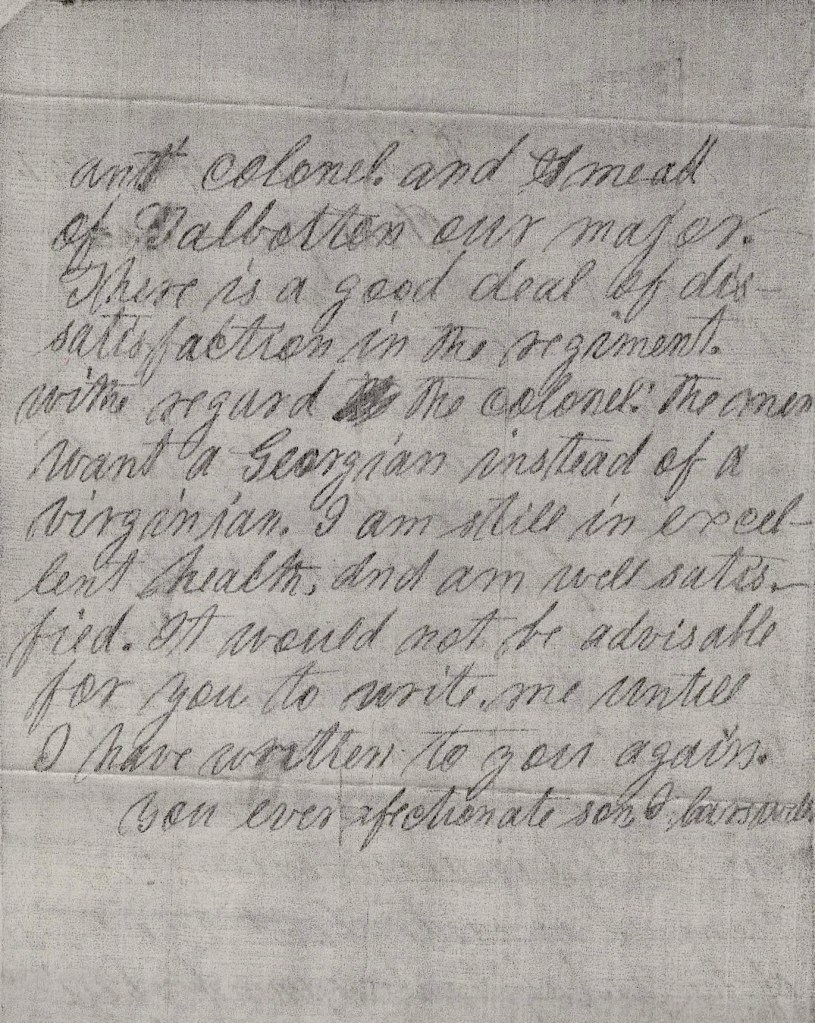 ant colonel. and Smead
of Talbotton our major.
There is a good deal of dis-
satisfaction in the regiment.
with regard to the colonel: the men
want a Georgian instead of a
virginian. I am still in excel-
lent health, And am well satis-
fied. It would not be advisable
for you to write. me untill
I have written to you again.
You ever afectionate son